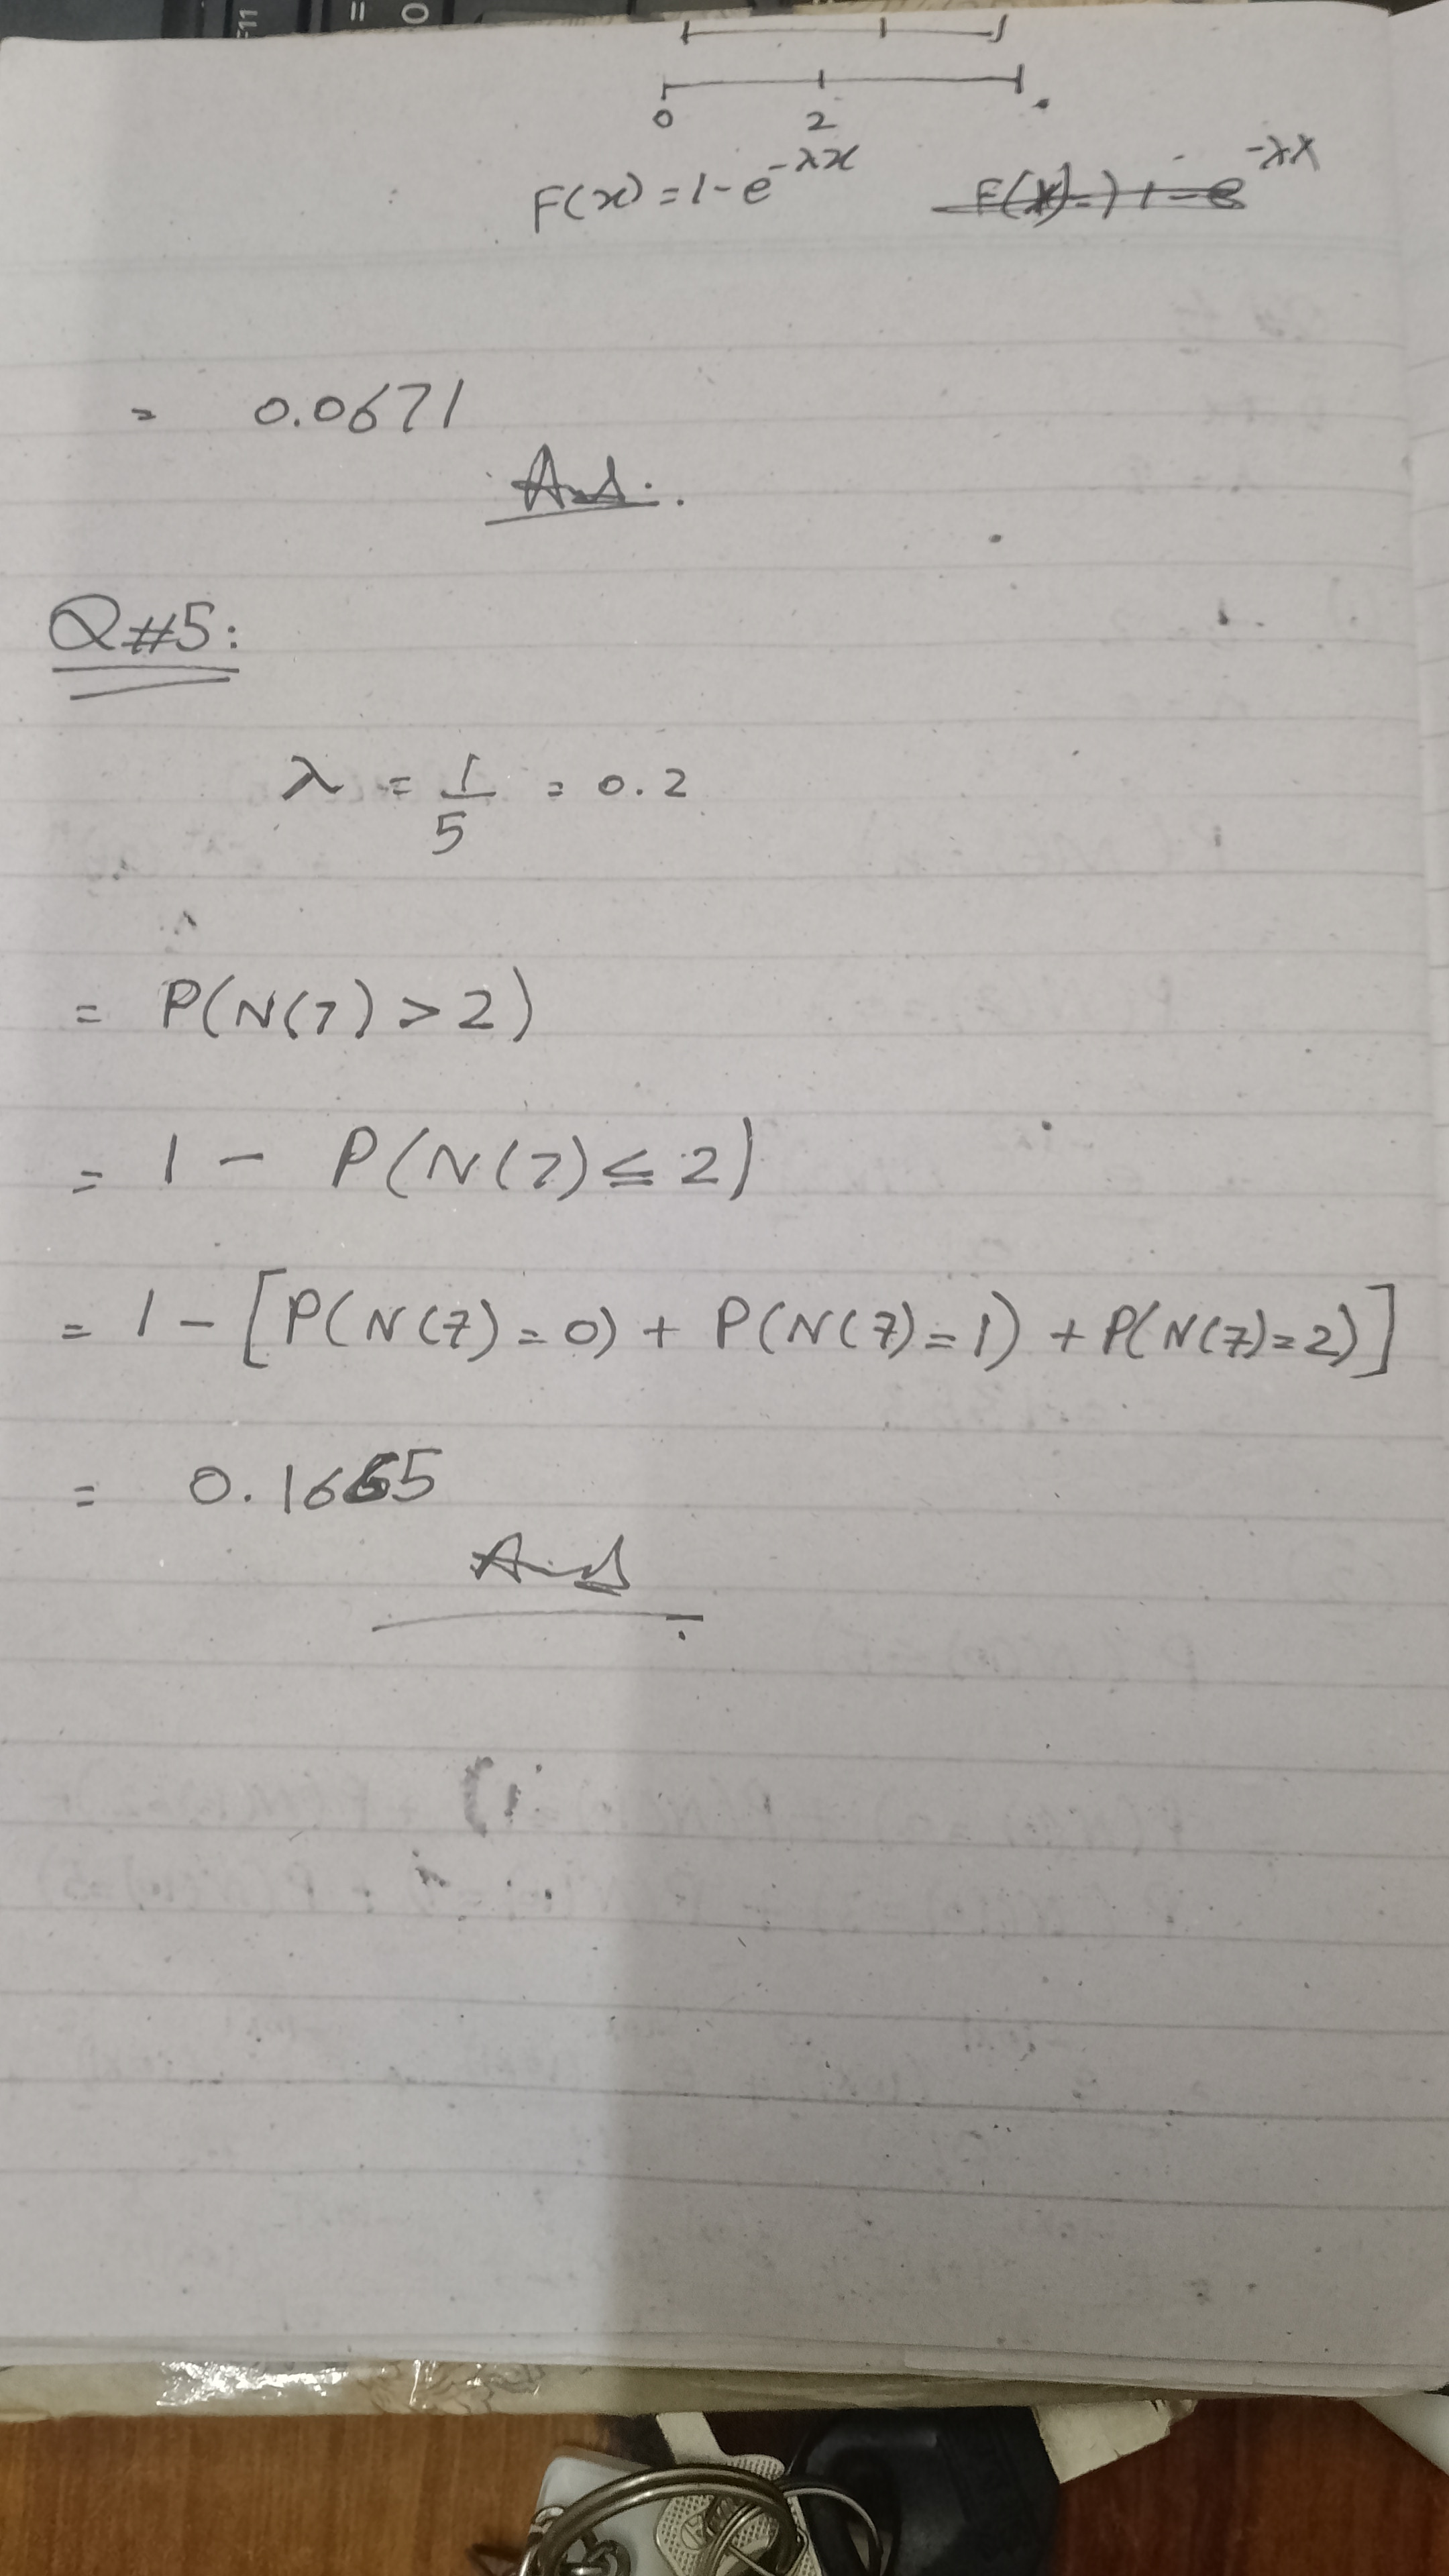 F11 = 0
0 2
F(x) = 1-e^-λx F(X) = 1-e^-λX
= 0.0671
Ans.
Q#5:
λ = 1/5 = 0.2
= P(N(7) > 2)
= 1 - P(N(7) ≤ 2)
= 1 - [P(N(7) = 0) + P(N(7) = 1) + P(N(7) = 2)]
= 0.1665
Ans